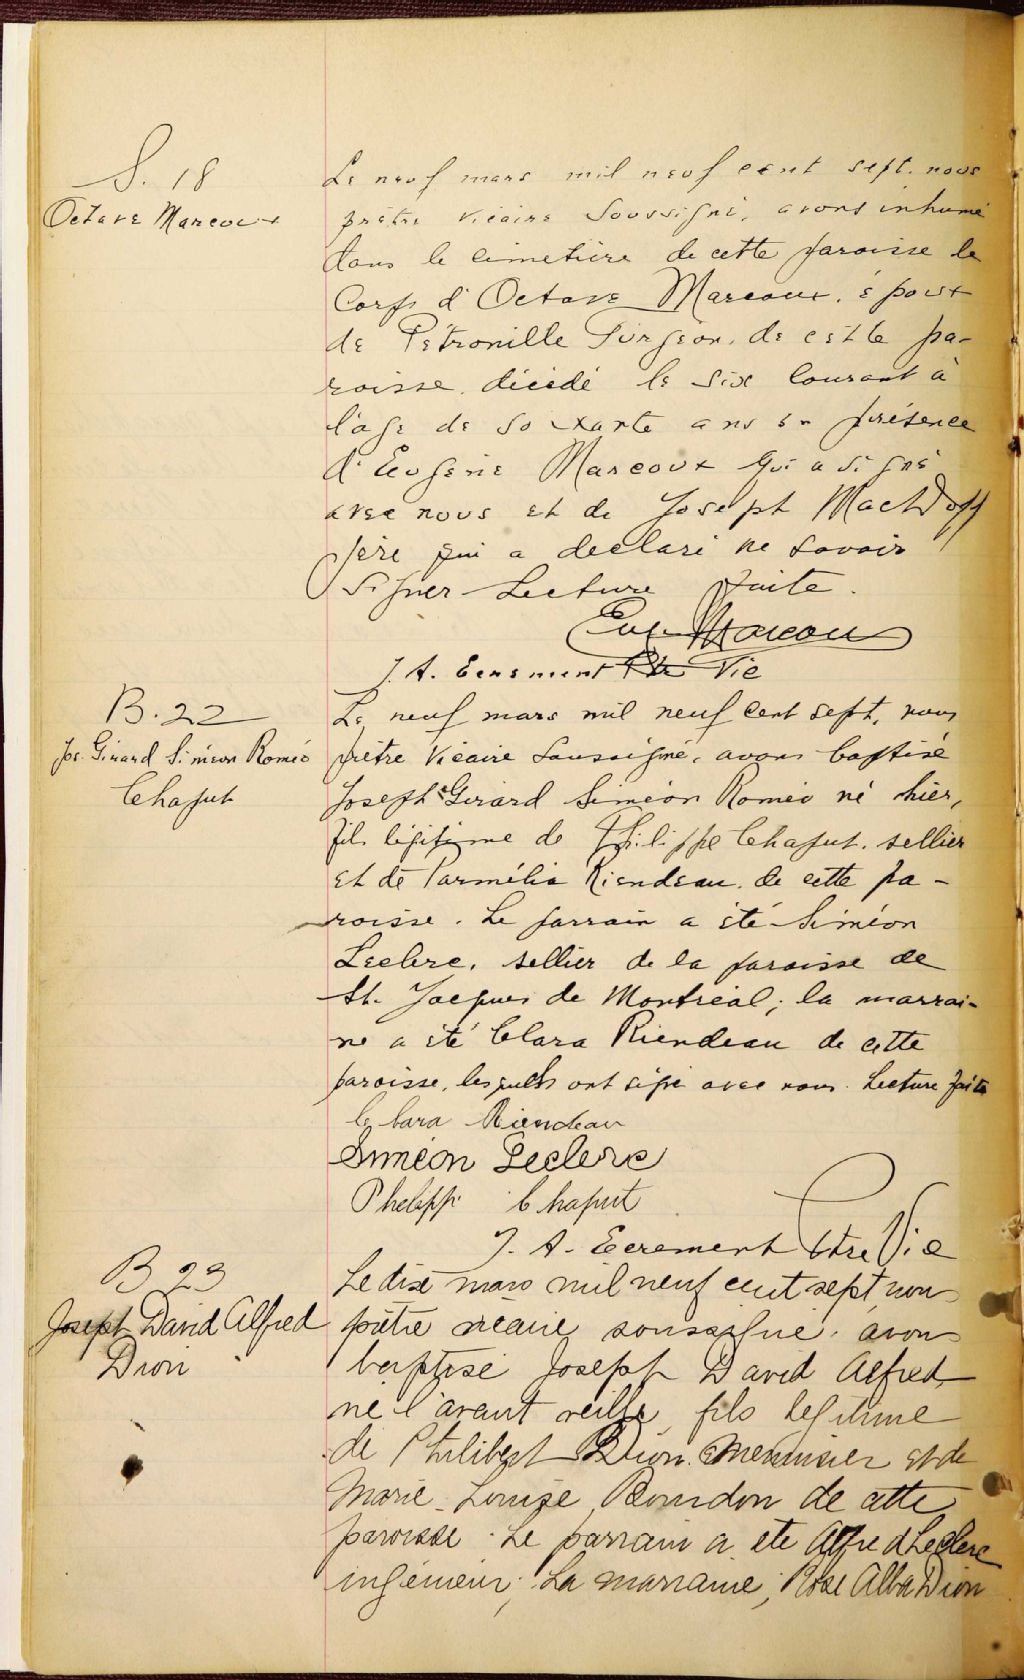 S. 18
Octave Marcoux
Le neuf mars mil neuf cent sept, nous
prêtre vicaire soussigné, avons inhumé
dans le cimetière de cette paroisse le
Corps d'Octave Marcoux, époux
de Pétronille Turgeon, de cette pa-
roisse, décédé le six courant à
l'age de soixante ans en présence
d'Eugène Marcoux qui a signé
avec nous et de Joseph
père qui a déclaré ne savoir
signer Lecture faite.
Eug Marcoux
J. A. Ecrement Ptre Vic
B. 22
Jos. Girard Siméon Roméo
Chaput
Le neuf mars mil neuf cent sept, nous
prêtre vicaire soussigné, avons baptisé
Joseph Girard Siméon Roméo né hier,
fils légitime de Philippe Chaput, sellier
et de Parmélia Riendeau, de cette pa-
roisse. Le parrain a été Siméon
Leclerc, sellier de la paroisse de
St. Jacques de Montréal; la marrai-
ne a été Clara Riendeau de cette
paroisse, lesquels ont signé avec nous. Lecture faite
Clara Riendeau
Siméon Leclerc
Philipp Chaput
J. A. Ecrement Ptre Vic
B 23
Joseph David Alfred
Dion
Le dix mars mil neuf cent sept, nous
prêtre vicaire soussigné, avons
baptisé Joseph David Alfred,
né l'avant veille, fils légitime
de Philibert Dion menuisier et de
Marie-Louise Bourdon de cette
paroisse. Le parrain a été Alfred Leclerc
ingénieur; La marraine, Rose Alba Dion